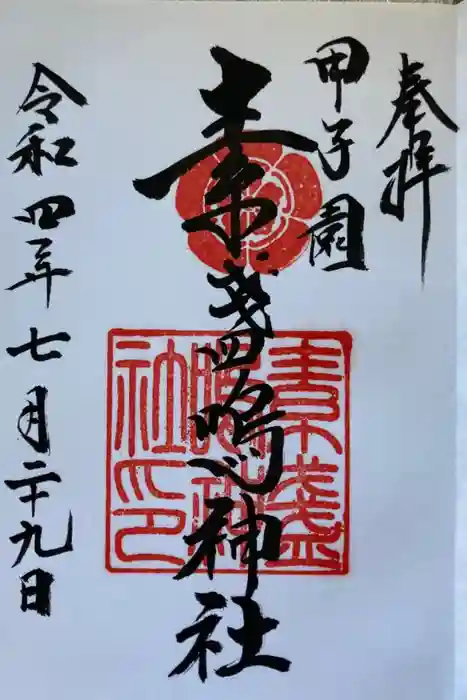 奉拝
甲子園
素盞嗚神社
素盞
嗚神
社印
令和四年七月二十九日